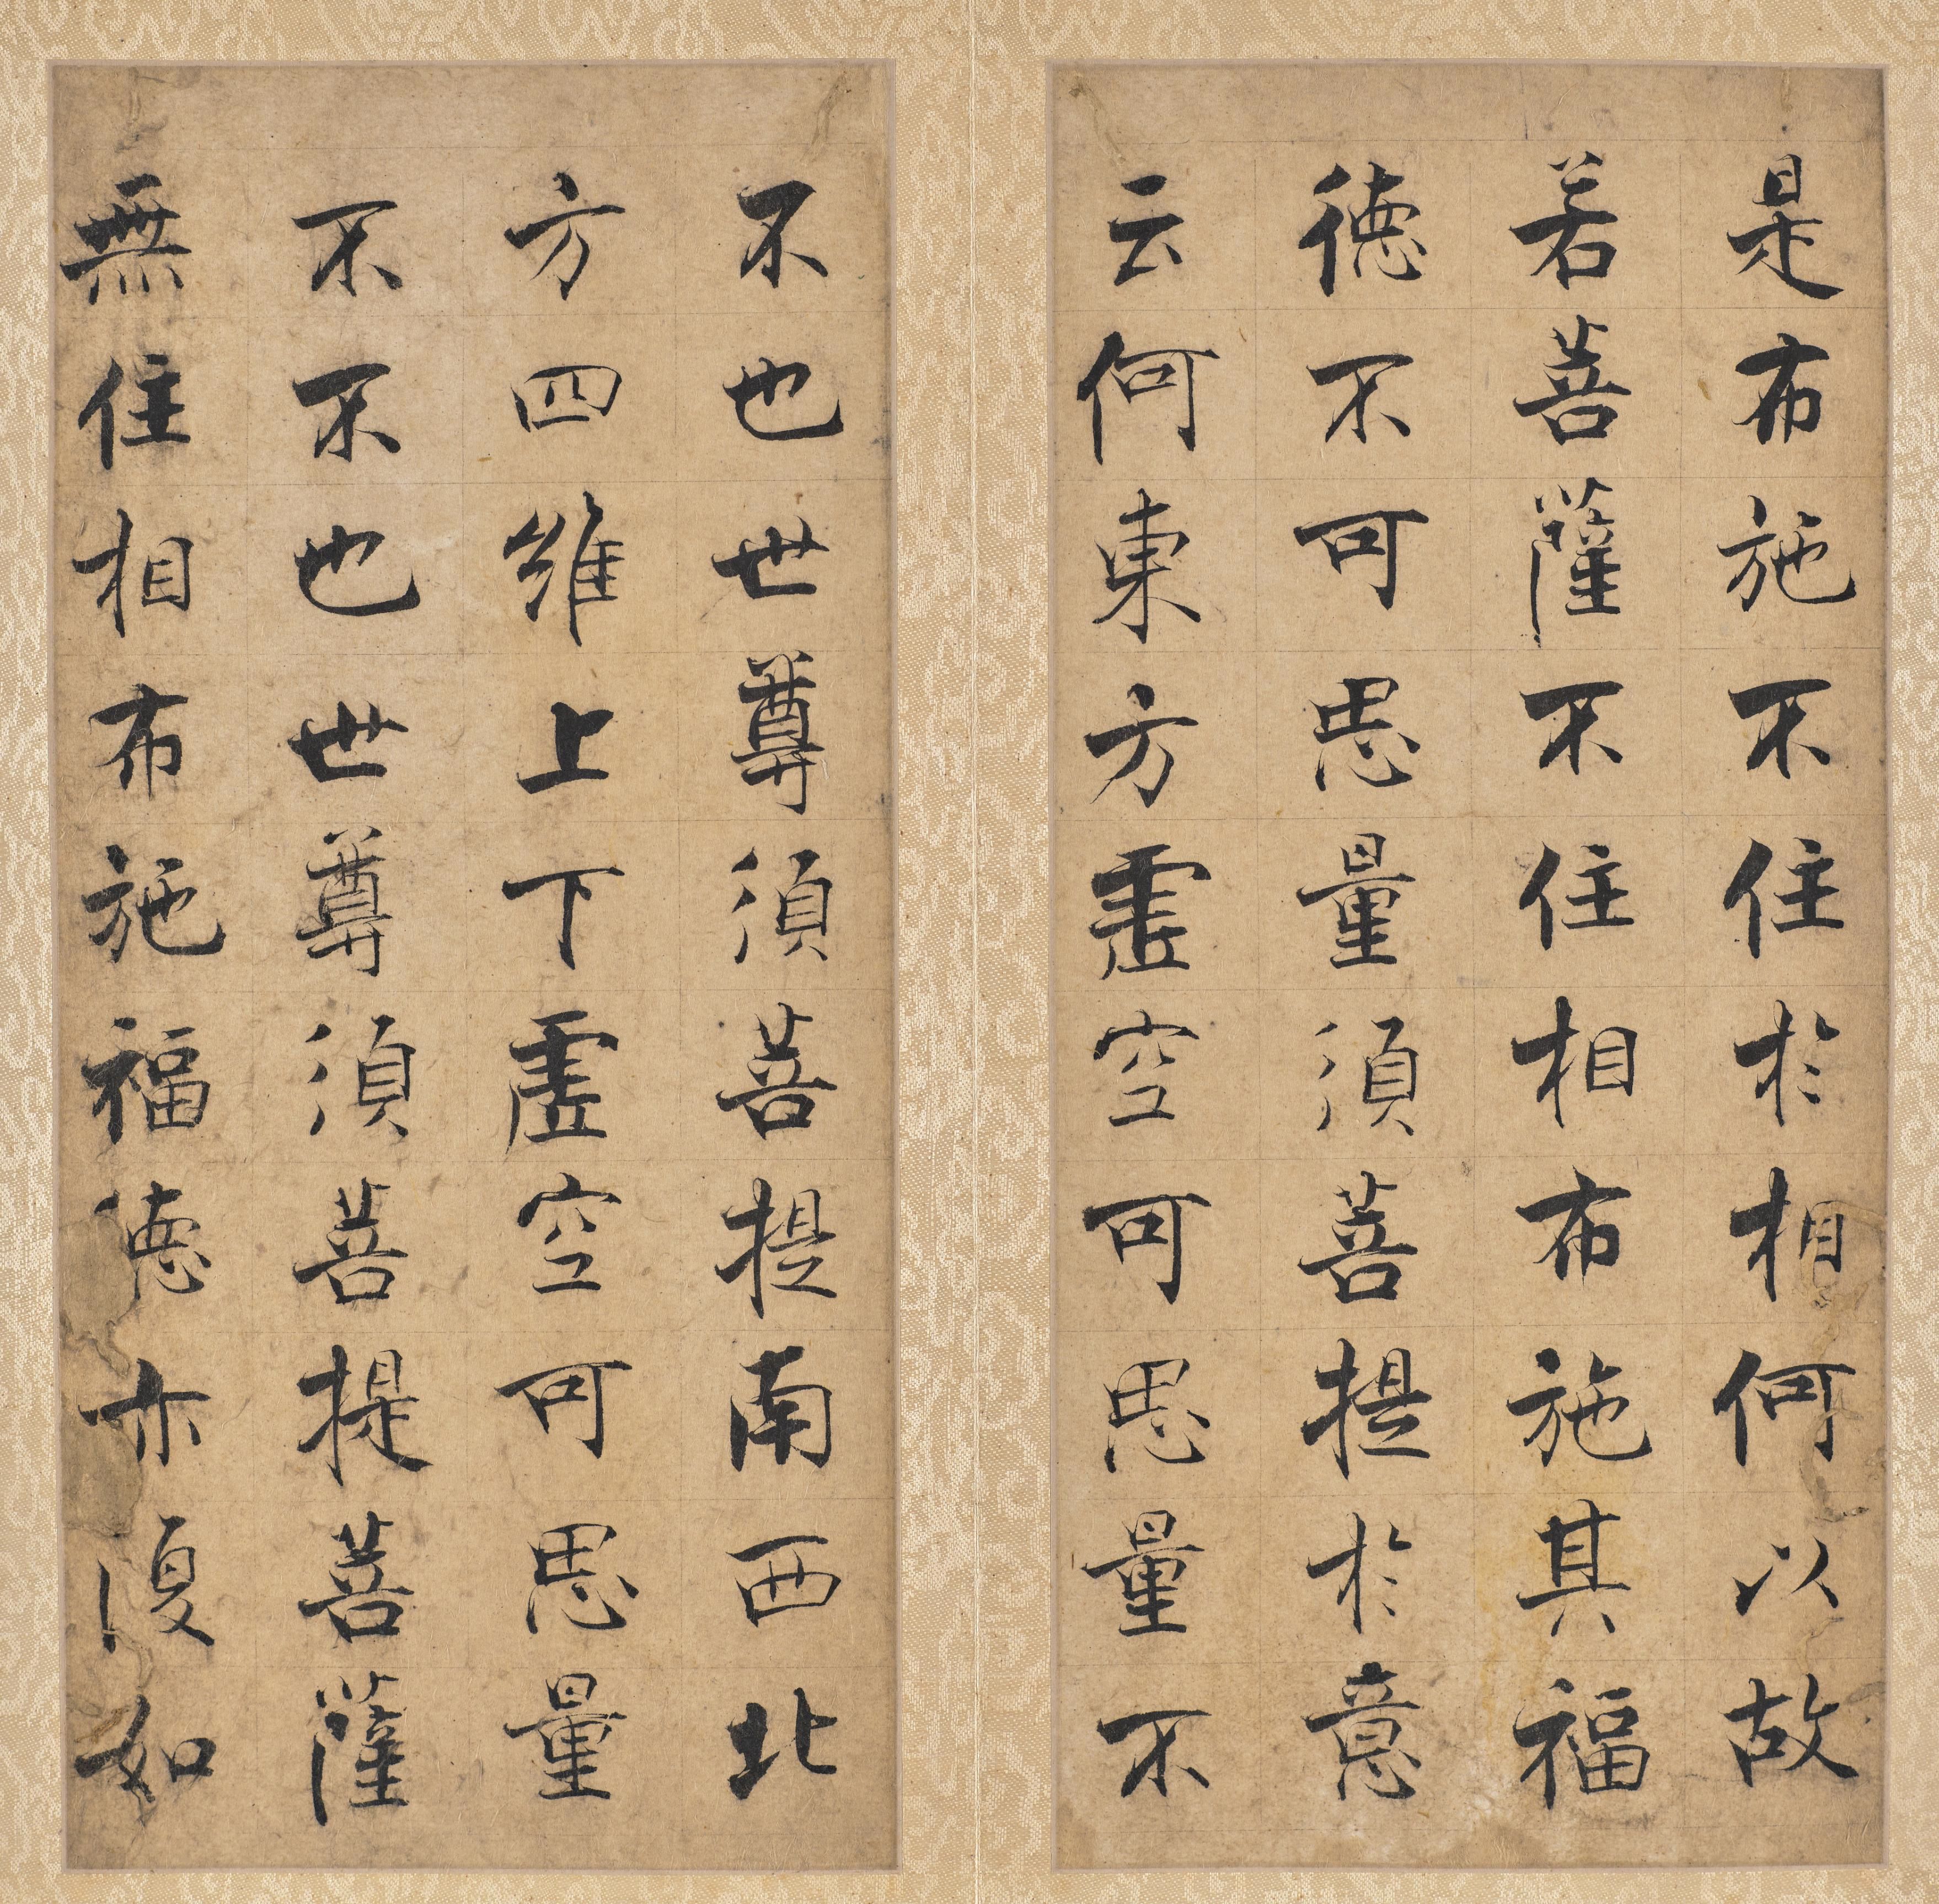 是布施不住於相何以故
若菩薩不住相布施其福
徳不可思量須菩提於意
云何東方虛空可思量不
不也世尊須菩提南西北
方四維上下虛空可思量
不不也世尊須菩提菩薩
無住相布施福徳亦復如